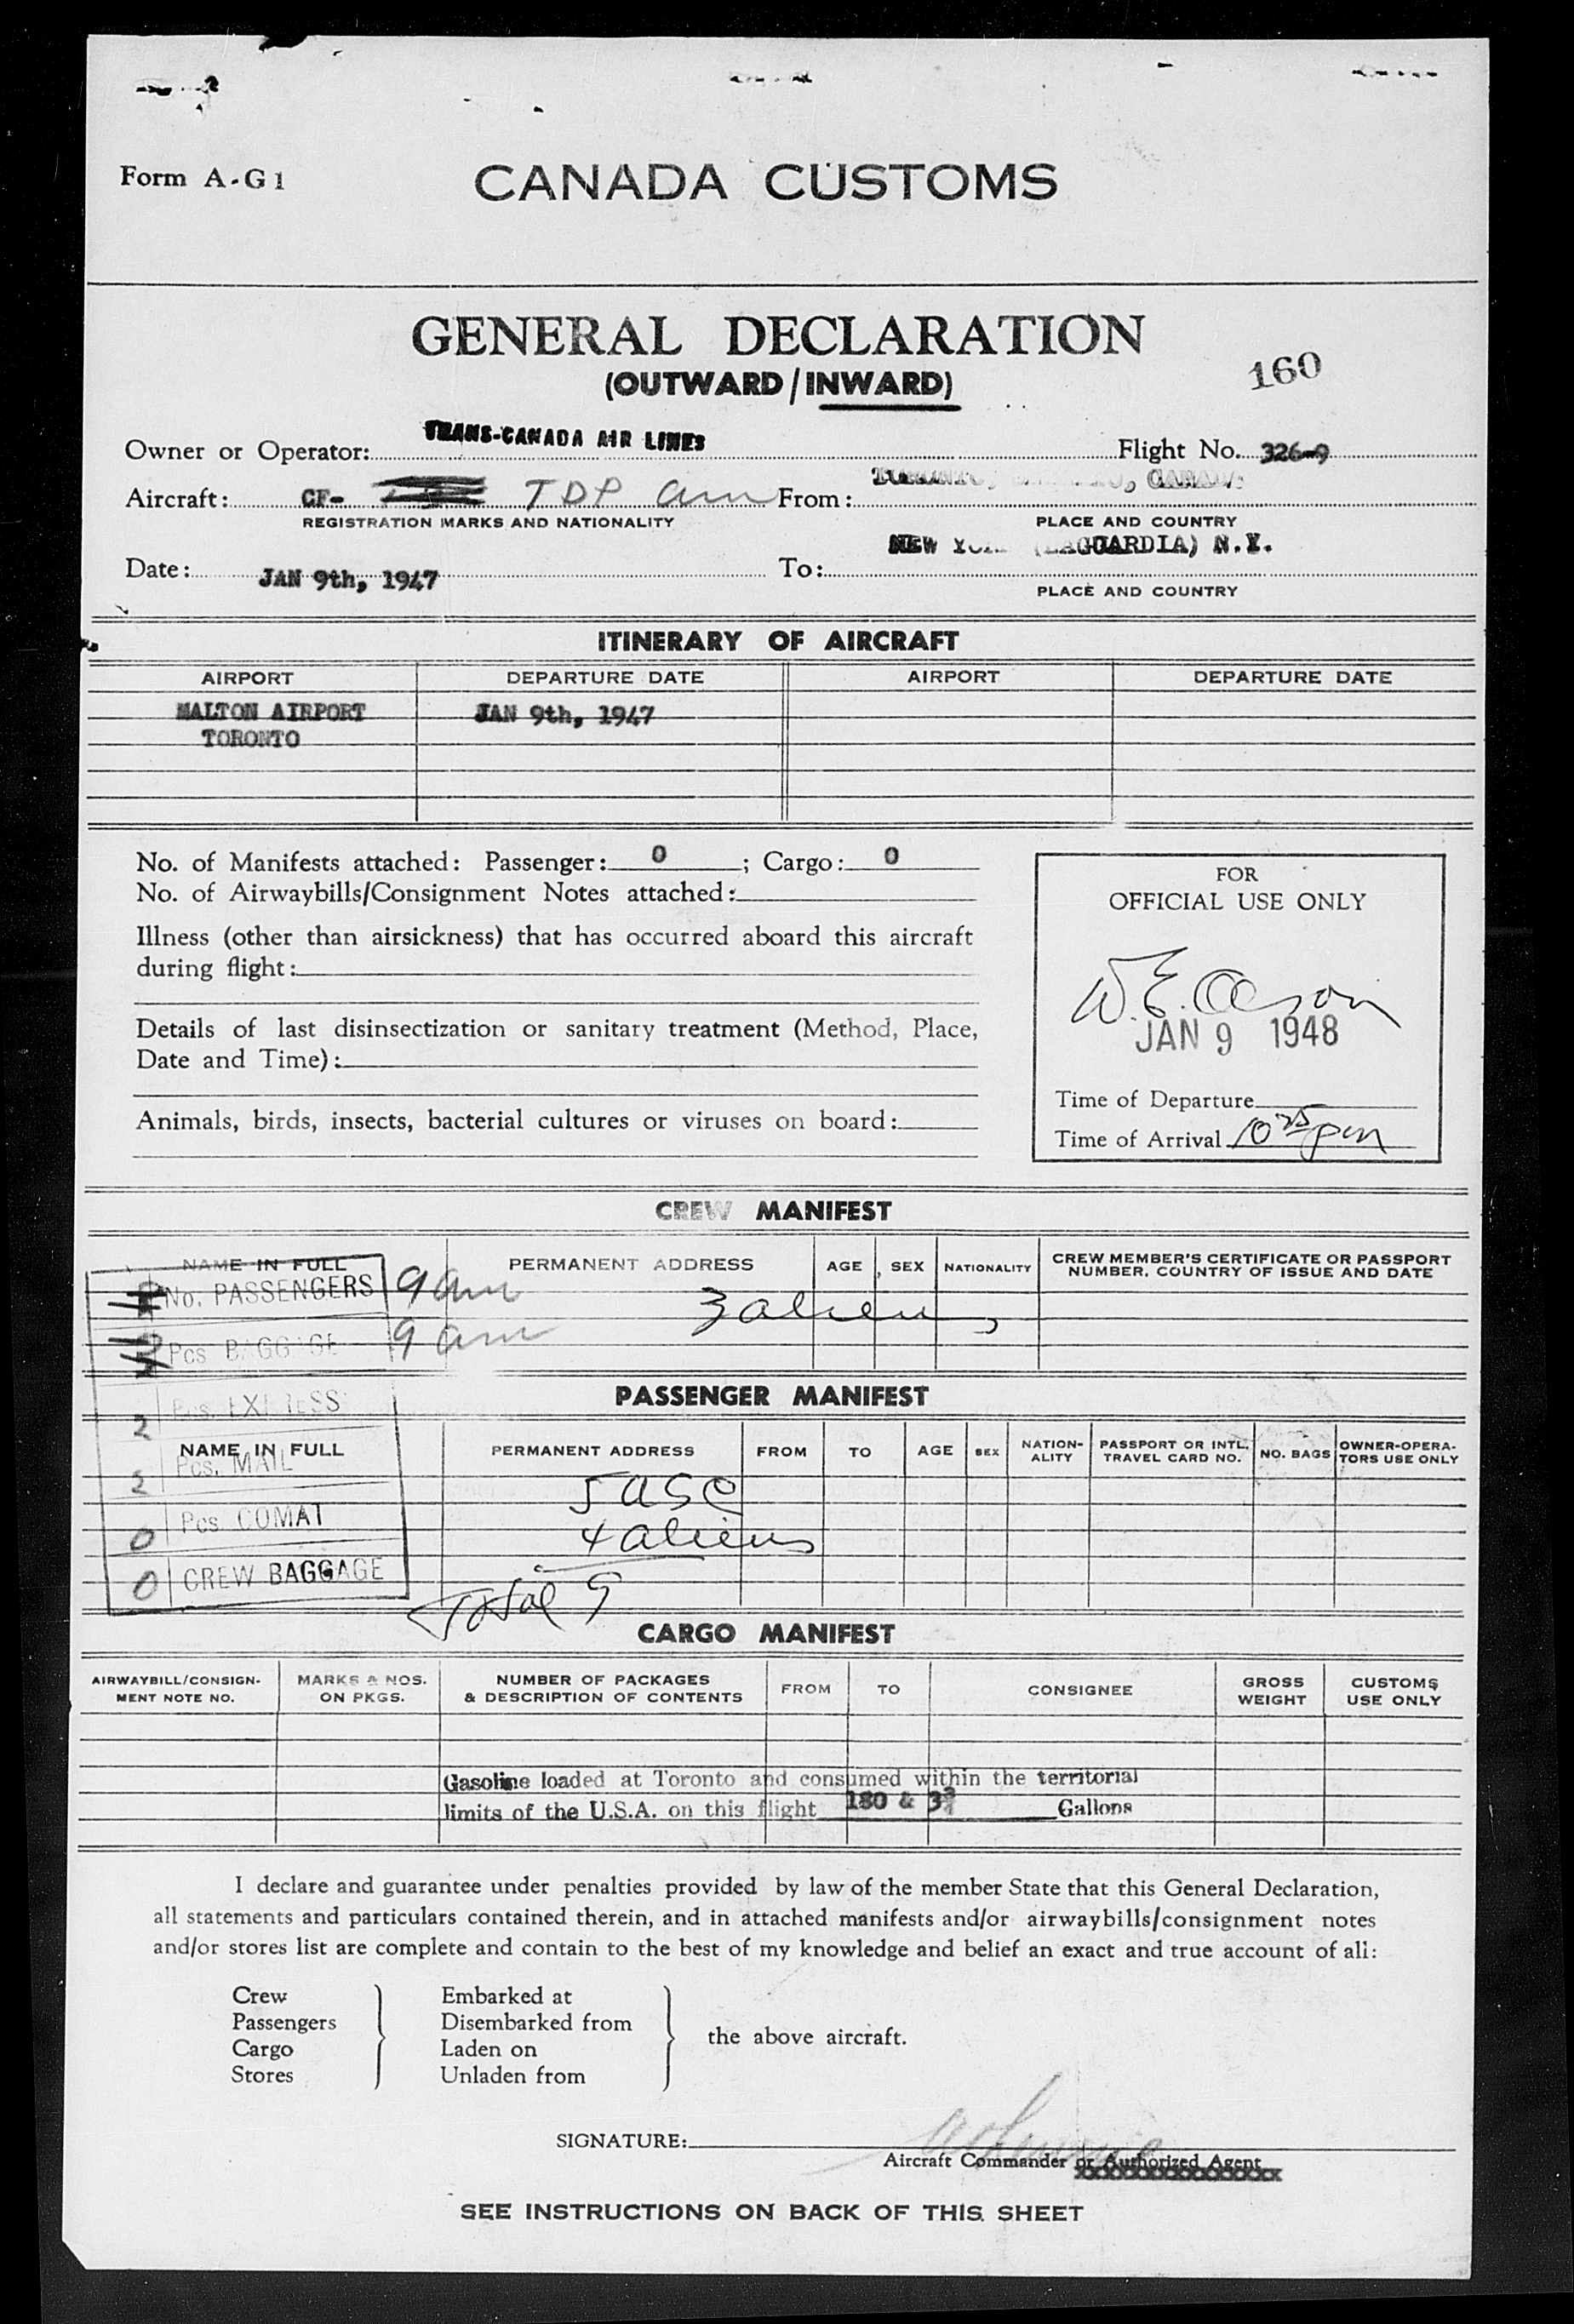 Form A-G1
CANADA CUSTOMS
GENERAL DECLARATION
(OUTWARD/INWARD)
160
Owner or Operator: TRANS-CANADA AIR LINES Flight No. 326-9
Aircraft: CF- TDP am From: TORONTO, CANADA
REGISTRATION MARKS AND NATIONALITY PLACE AND COUNTRY
Date: JAN 9th, 1947 To: NEW YORK (LAGUARDIA) N.Y.
PLACE AND COUNTRY
ITINERARY OF AIRCRAFT
AIRPORT DEPARTURE DATE AIRPORT DEPARTURE DATE
MALTON AIRPORT JAN 9th, 1947
TORONTO
No. of Manifests attached: Passenger: 0 ; Cargo: 0
No. of Airwaybills/Consignment Notes attached:
Illness (other than airsickness) that has occurred aboard this aircraft
during flight:
Details of last disinsectization or sanitary treatment (Method, Place,
Date and Time):
Animals, birds, insects, bacterial cultures or viruses on board:
FOR
OFFICIAL USE ONLY
W.E.
JAN 9 1948
Time of Departure
Time of Arrival 10 25 pm
CREW MANIFEST
NAME IN FULL PERMANENT ADDRESS AGE SEX NATIONALITY CREW MEMBER'S CERTIFICATE OR PASSPORT
NUMBER, COUNTRY OF ISSUE AND DATE
No. PASSENGERS 9 am
3 aliens
Pcs BAGGAGE 9 am
PASSENGER MANIFEST
2 Pcs. EXPRESS
NAME IN FULL PERMANENT ADDRESS FROM TO AGE SEX NATION-
ALITY PASSPORT OR INTL.
TRAVEL CARD NO. NO. BAGS OWNER-OPERA-
TORS USE ONLY
2 Pcs. MAIL
5 USC
0 Pcs COMAT
4 aliens
0 CREW BAGGAGE
Total 9
CARGO MANIFEST
AIRWAYBILL/CONSIGN-
MENT NOTE NO. MARKS & NOS.
ON PKGS. NUMBER OF PACKAGES
& DESCRIPTION OF CONTENTS FROM TO CONSIGNEE GROSS
WEIGHT CUSTOMS
USE ONLY
Gasoline loaded at Toronto and consumed within the territorial
limits of the U.S.A. on this flight 180 & Gallons
I declare and guarantee under penalties provided by law of the member State that this General Declaration,
all statements and particulars contained therein, and in attached manifests and/or airwaybills/consignment notes
and/or stores list are complete and contain to the best of my knowledge and belief an exact and true account of all:
Crew Embarked at
Passengers Disembarked from
the above aircraft.
Cargo Laden on
Stores Unladen from
SIGNATURE:
Aircraft Commander or Authorized Agent
SEE INSTRUCTIONS ON BACK OF THIS SHEET